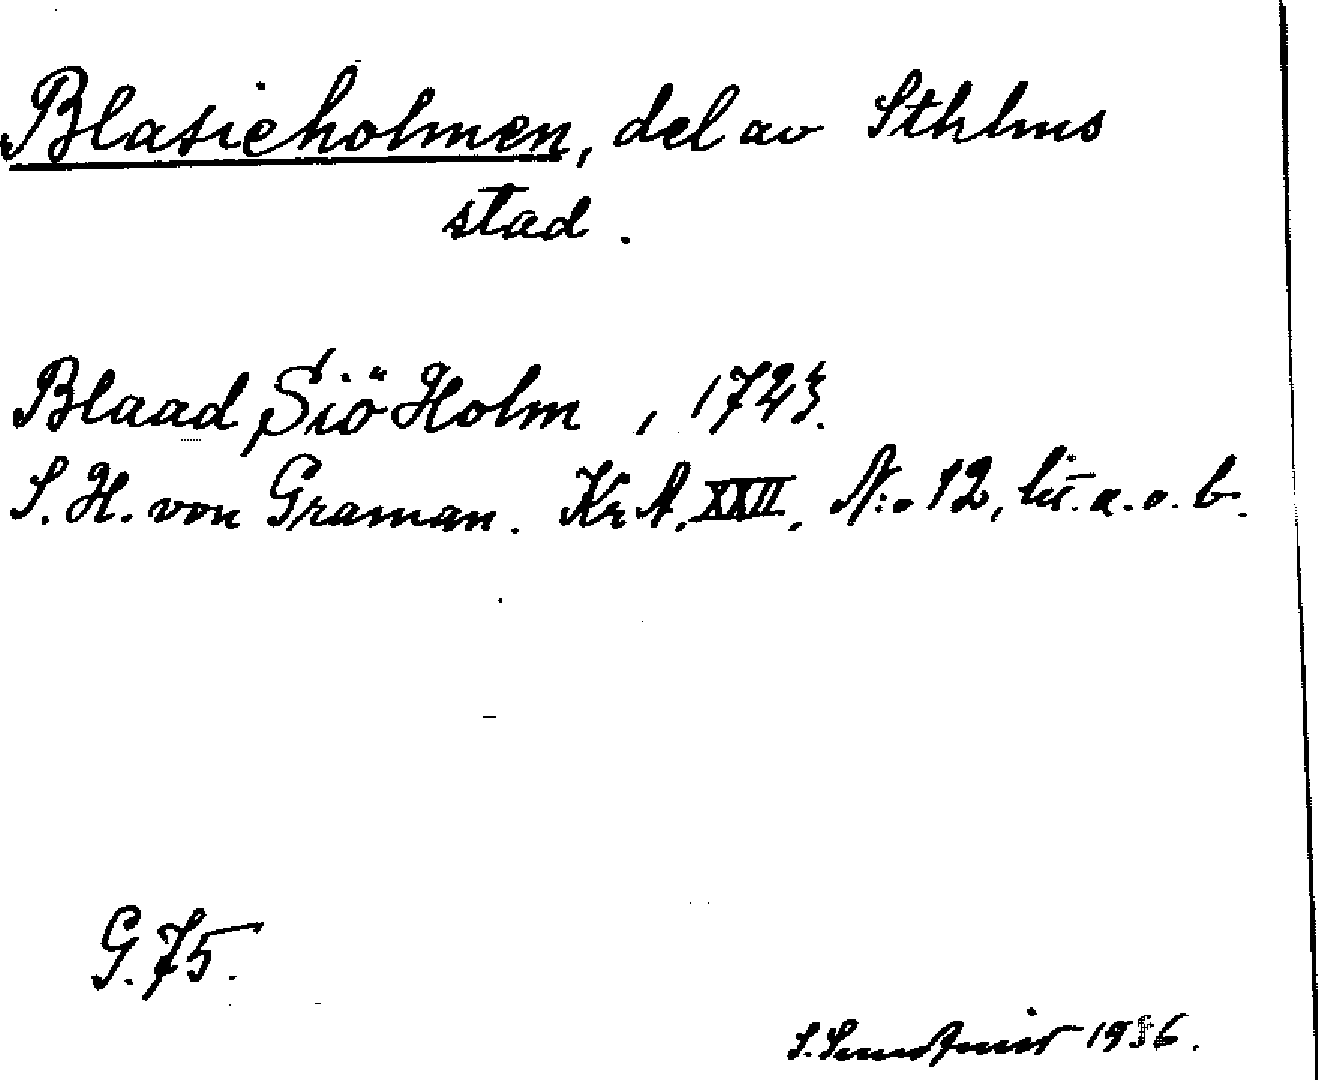 Blasieholmen, del av Sthlms
stad.
Blaad Siö Holm, 1723.
S. H. von Graman. Kr A. XXII. N:o 12, lit. a. o. b.
G. 75.
S. 1936.